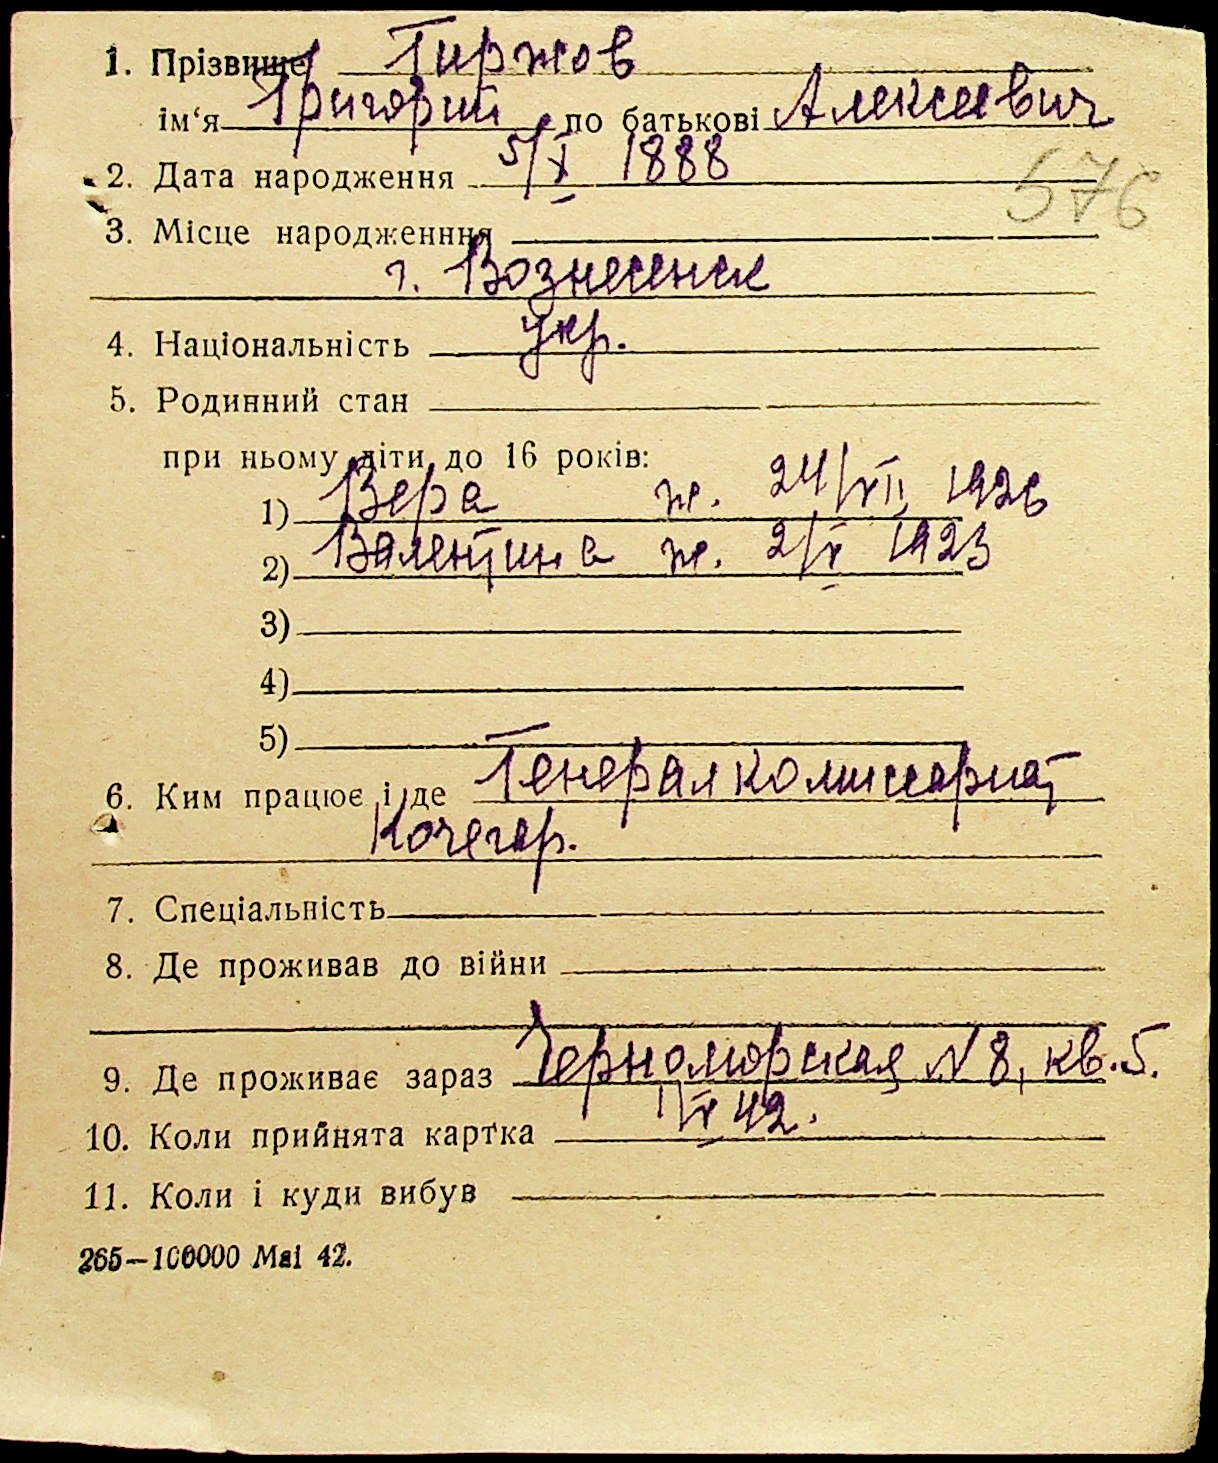 1. Прізвище Гиржов
ім‘я Григорий по батькові Алексеевич
2. Дата народження 5/X 1888
576
3. Місце народженння
г. Вознесенск
4. Національність укр.
5. Родинний стан
при ньому діти до 16 років:
1) Вера ж. 24/XII 1926
2) Валентина ж. 2/X 1923
3)
4)
5)
6. Ким працює і де Генералкомиссариат
Кочегар.
7. Спеціальність
8. Де проживав до війни
9. Де проживає зараз Черноморская N 8, кв. 5.
10. Коли прийнята картка 1/X 42.
11. Коли і куди вибув
265—100000 Mai 42.